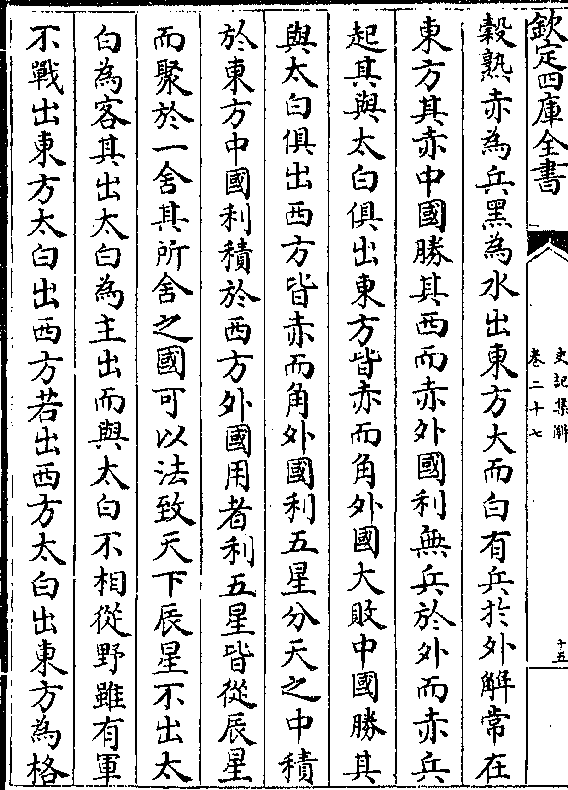 欽定四庫全書
史記集解
卷二十七
十五
穀熟赤為兵黑為水出東方大而白有兵於外解常在
東方其赤中國勝其西而赤外國利無兵於外而赤兵
起其與太白俱出東方皆赤而角外國大敗中國勝其
與太白俱出西方皆赤而角外國利五星分天之中積
於東方中國利積於西方外國用者利五星皆從辰星
而聚於一舍其所舍之國可以法致天下辰星不出太
白為客其出太白為主出而與太白不相從野雖有軍
不戰出東方太白出西方若出西方太白出東方為格